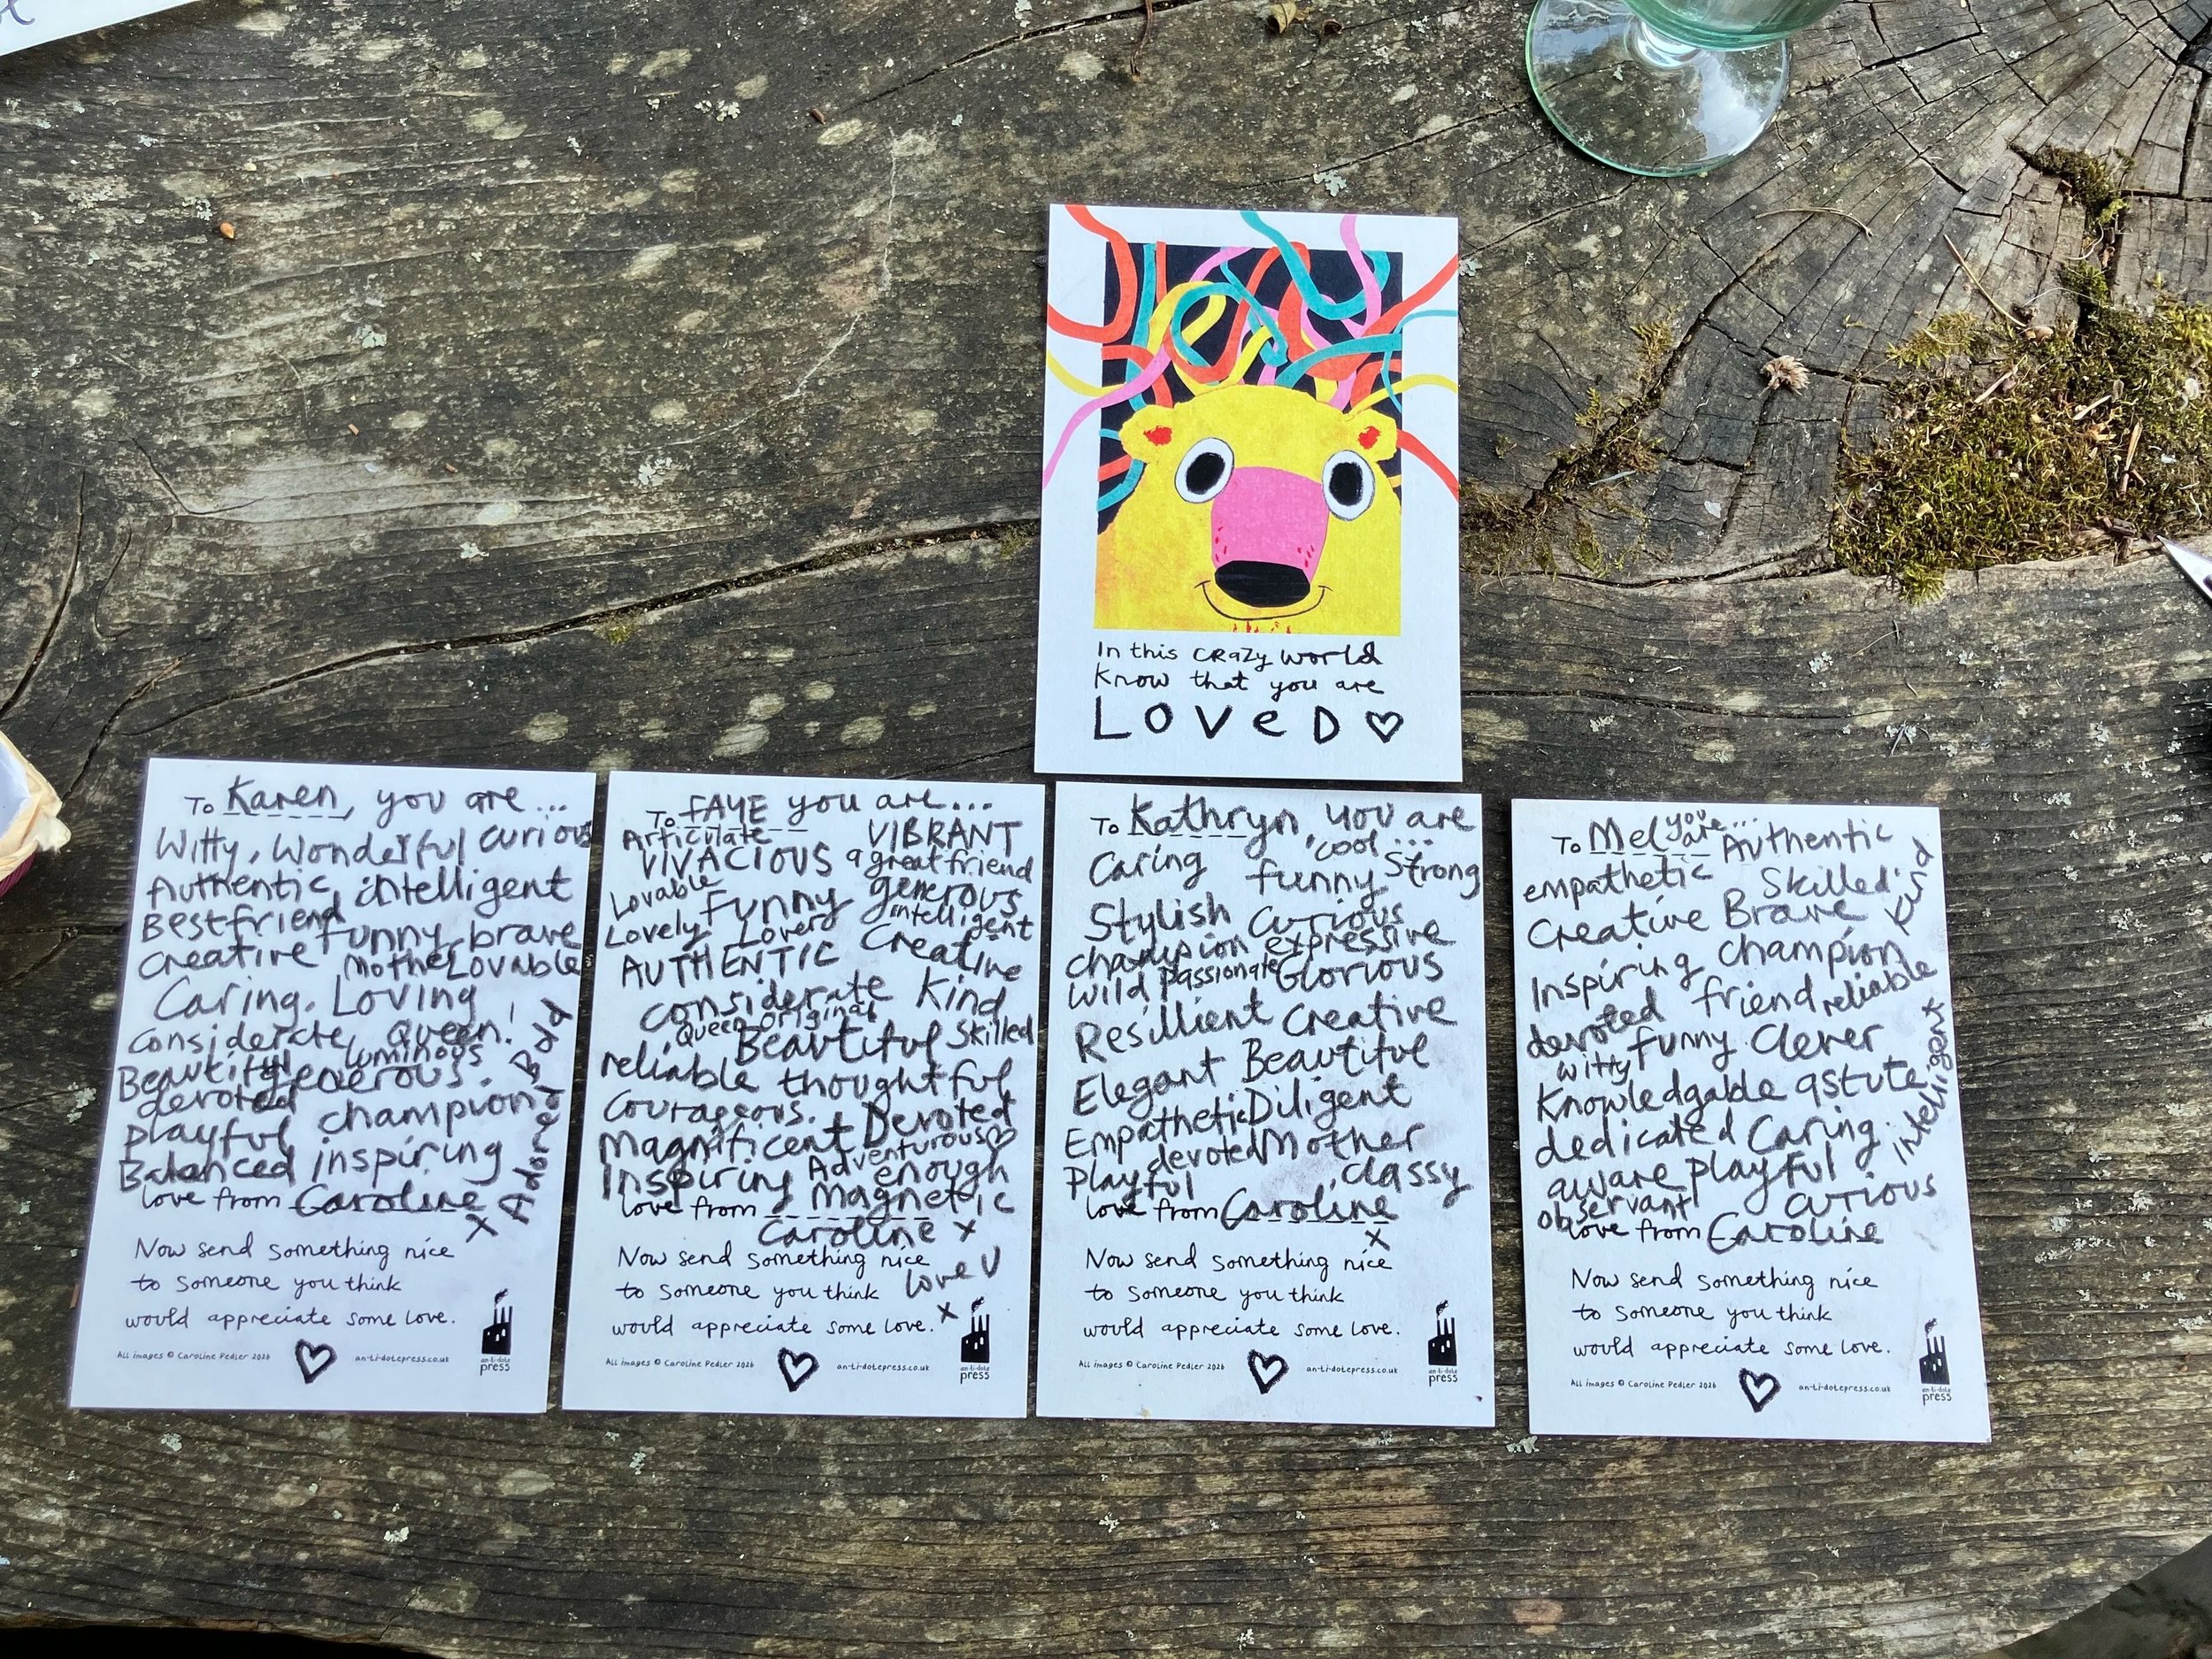 In this CRAZY world
Know that you are
LOVED
To Karen, you are...
Witty, Wonderful curious
Authentic, intelligent
Best friend funny, brave
Creative Mother Lovable
Caring, Loving
Considerate, Queen!
Beautiful luminous
generous.
devoted champion
playful
Balanced inspiring
Bold
Adored
love from Caroline
x
Now send something nice
to someone you think
would appreciate some love.
All images © Caroline Pedler 2026
an-ti-dotepress.co.uk
an-ti-dote
press
To FAYE you are...
Articulate VIBRANT
VIVACIOUS a great friend
Lovable funny generous
Lovely Loved intelligent
AUTHENTIC Creative
considerate Kind
Queen original
Beautiful Skilled
reliable thoughtful
Courageous. Devoted
Magnificent Adventurous
Inspiring enough
magnetic
love from
Caroline x
Now send something nice
love U
to someone you think
x
would appreciate some love.
All images © Caroline Pedler 2026
an-ti-dotepress.co.uk
an-ti-dote
press
To Kathryn, you are
cool ...
Caring funny Strong
Stylish Curious
champion expressive
Wild passionate Glorious
Resillient Creative
Elegant Beautiful
Empathetic Diligent
devoted Mother
Playful , classy
love from Caroline
x
Now send something nice
to someone you think
would appreciate some love.
All images © Caroline Pedler 2026
an-ti-dotepress.co.uk
an-ti-dote
press
To Mel you are... Authentic
empathetic Skilled
Creative Brave Kind
Inspiring champion
devoted friend reliable
witty funny Clever
Knowledgable astute
intelligent
dedicated Caring.
aware playful
observant curious
love from Caroline
Now send something nice
to someone you think
would appreciate some love.
All images © Caroline Pedler 2026
an-ti-dotepress.co.uk
an-ti-dote
press